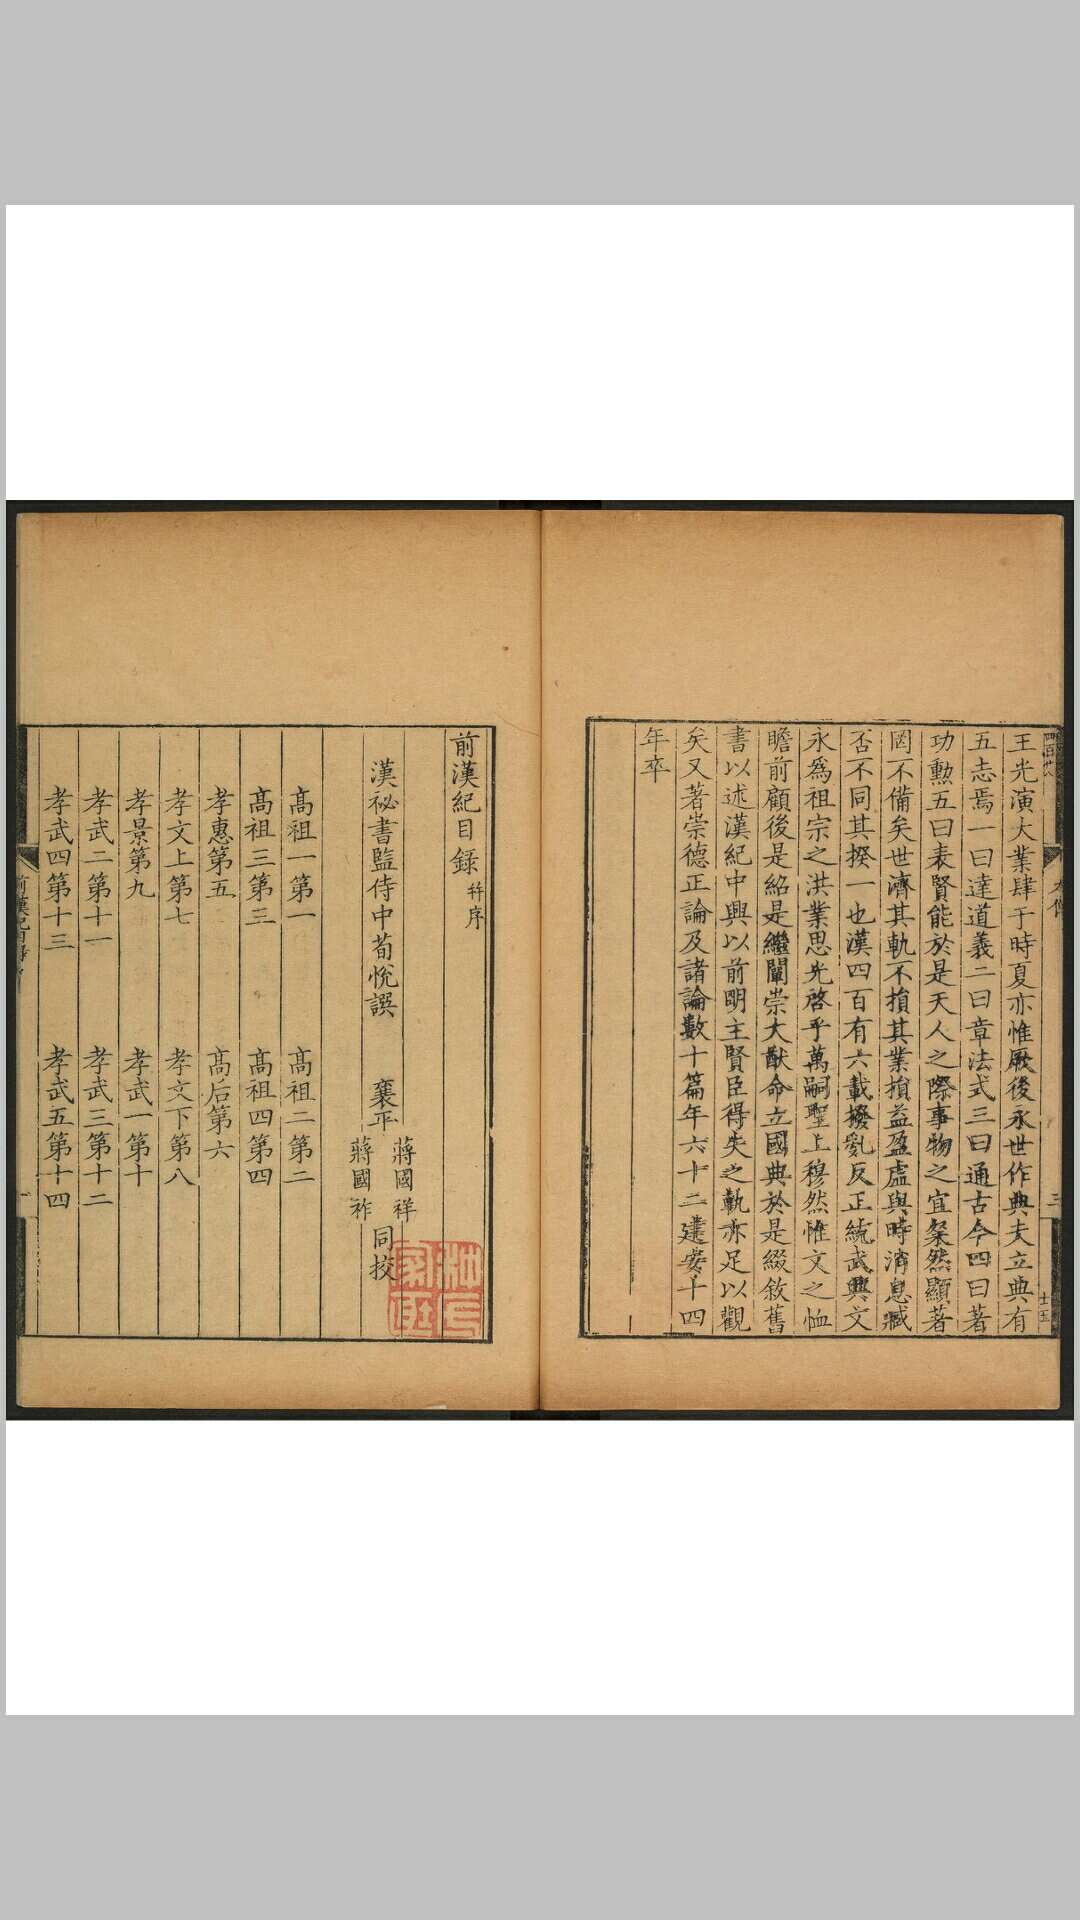 王光演大業肆于時夏亦惟厥後永世作典夫立典有
五志焉一曰達道義二曰章法式三曰通古今四曰著
功勲五曰表賢能於是天人之際事物之宜粲然顯著
罔不備矣世濟其軌不損其業損益盈虛與時消息臧
否不同其揆一也漢四百有六載撥亂反正統武興文
永爲祖宗之洪業思光啓乎萬嗣聖上穆然惟文之恤
瞻前顧後是紹是繼闡崇大猷命立國典於是綴敘舊
書以述漢紀中興以前明主賢臣得失之軌亦足以觀
矣又著崇德正論及諸論數十篇年六十二建安十四
年卒
前漢紀目錄 并序
漢祕書監侍中荀悅譔 襄平 蔣國祥 蔣國祚 同挍
髙祖一第一 髙祖二第二
髙祖三第三 髙祖四第四
孝惠第五 髙后第六
孝文上第七 孝文下第八
孝景第九 孝武一第十
孝武二第十一 孝武三第十二
孝武四第十三 孝武五第十四